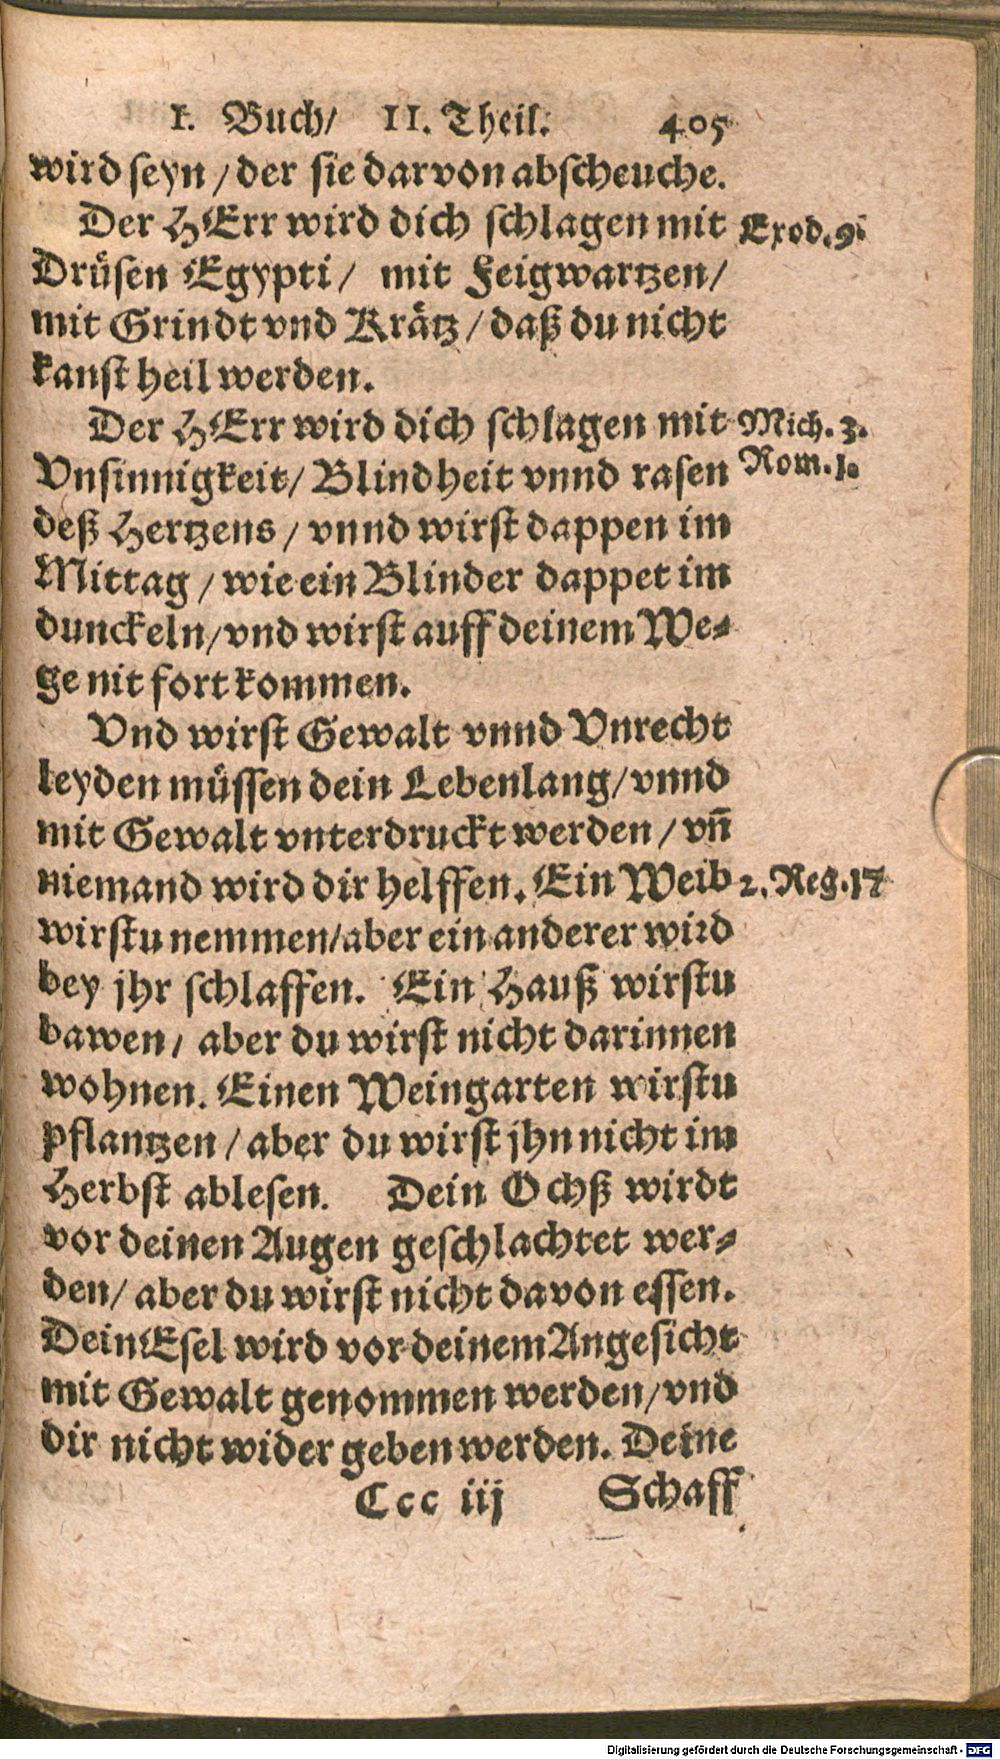 I. Buch/ II. Theil. 405
wird seyn / der sie darvon abscheuche.
Der HErr wird dich schlagen mit Exod. 9.
Drüsen Egypti / mit Feigwartzen /
mit Grindt vnd Krätz / daß du nicht
kanst heil werden.
Der HErr wird dich schlagen mit Mich. 3.
Vnsinnigkeit / Blindheit vnnd rasen Rom. 1.
deß Hertzens / vnnd wirst dappen im
Mittag / wie ein Blinder dappet im
dunckeln / vnd wirst auff deinem We-
ge nit fort kommen.
Vnd wirst Gewalt vnnd Vnrecht
leyden müssen dein Lebenlang / vnnd
mit Gewalt vnterdruckt werden / vñ
niemand wird dir helffen. Ein Weib 2. Reg. 17
wirstu nemmen / aber ein anderer wird
bey jhr schlaffen. Ein Hauß wirstu
bawen / aber du wirst nicht darinnen
wohnen. Einen Weingarten wirstu
pflantzen / aber du wirst jhn nicht im
Herbst ablesen. Dein Ochß wirdt
vor deinen Augen geschlachtet wer-
den / aber du wirst nicht davon essen.
Dein Esel wird vor deinem Angesicht
mit Gewalt genommen werden / vnd
dir nicht wider geben werden. Deine
Ccc iij Schaff
Digitalisierung gefördert durch die Deutsche Forschungsgemeinschaft - DFG